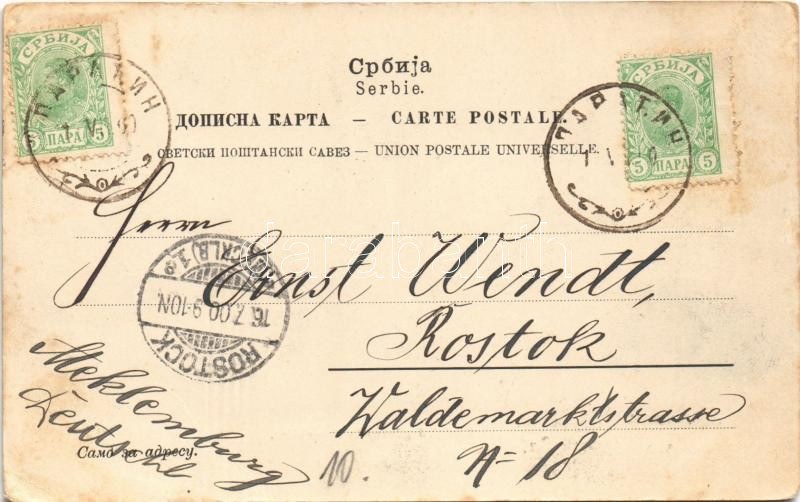 СРБИЈА
5 ПАРА 5
ПАРАЋИН
СРБИЈА
5 ПАРА 5
ПАРАЋИН
Србија
Serbie.
ДОПИСНА КАРТА — CARTE POSTALE.
СВЕТСКИ ПОШТАНСКИ САВЕЗ — UNION POSTALE UNIVERSELLE.
Herrn
Ernst Wendt,
Rostok
Waldemarstrasse
N= 18
Meklemburg
Само за адресу.
10.
ROSTOCK
16.7.00.9-10N.
darabanth